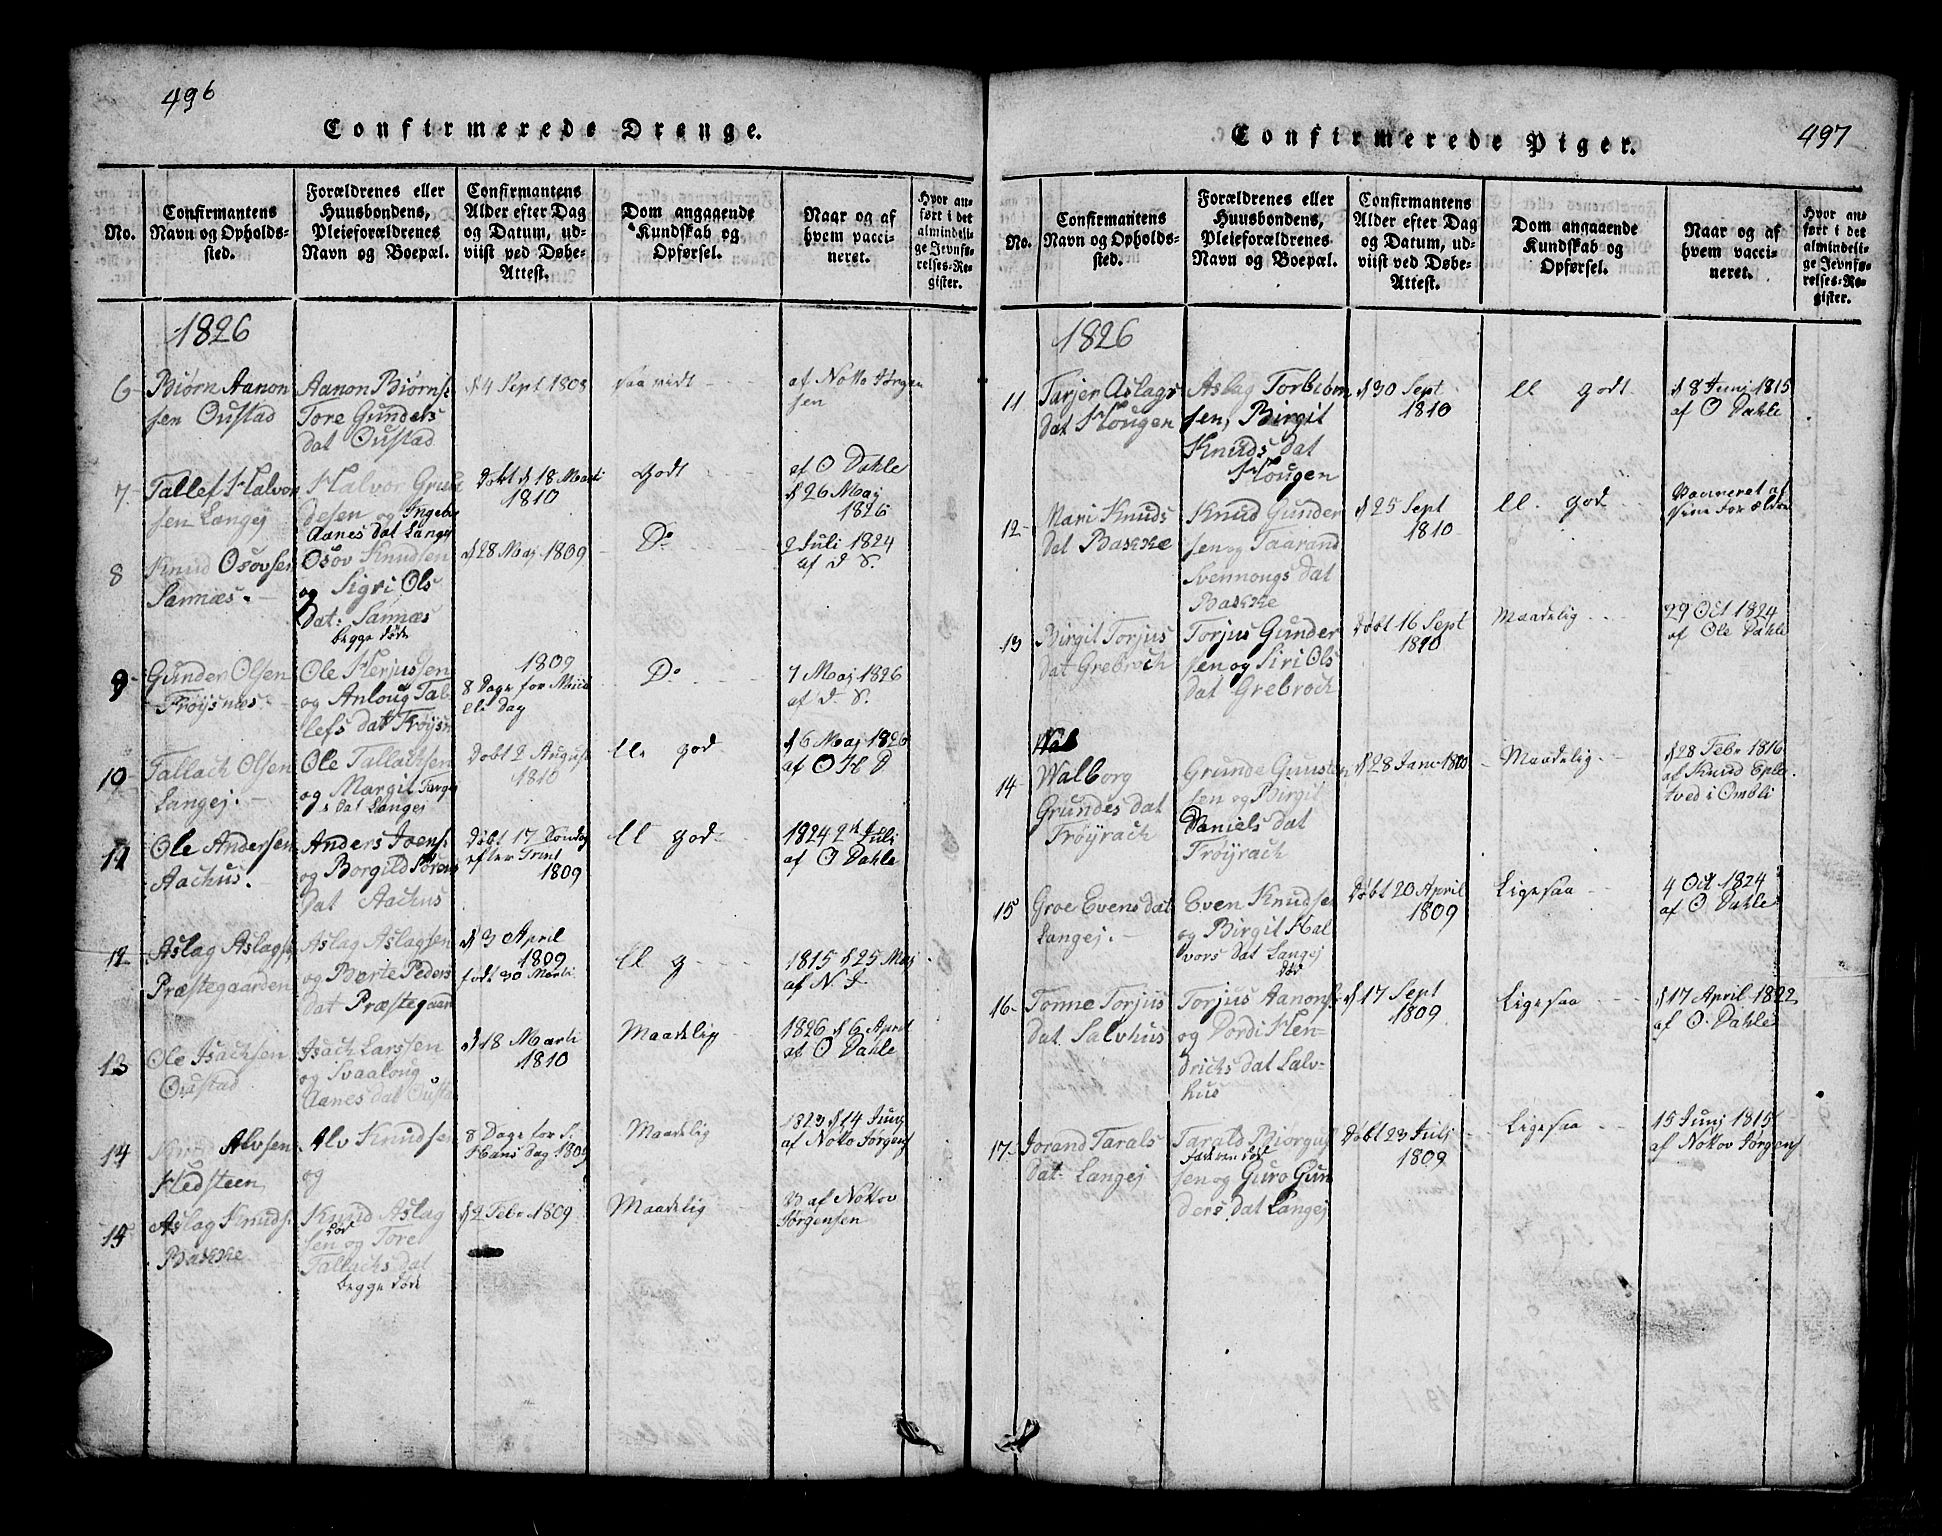 496
Confirmerede Drenge.
No.
Confirmantens
Navn og Opholds-
sted.
Forældrenes eller
Huusbondens,
Pleieforældrenes
Navn og Boepæl.
Confirmantens
Alder efter Dag
og Datum, ud-
viist ved Døbe-
Attest.
Dom angaaende
Kundskab og
Opførsel.
Naar og af
hvem vacci-
neret.
Hvor an-
ført i det
almindeli-
ge Jevnfø-
relses-Re-
gister.
1826
6 Biørn Aanon
sen Oustad
Aanon Biørns:
Tore Gunders
dat Oustad
d 4 Sept 1808
saa vidt
af Notto Jørgen
sen
7 Tallef Halvor
sen Langej
Halvor Grun
desen og Ingebor
Aanes dat Langej
Døbt d 18 Marti
1810
Godt
af O Dahle
d 26 Maj
1826
8 Knud Osovsen
Sannæs.
Osov Knudsen
og Sigri Ols
Dat: Sannæs
begge døde
d 28 Maj 1809
Do
2 Juli 1824
af d S.
9 Gunder Olsen
Frøysnæs.
Ole Herjussen
og Anloug Tal
lefs dat Frøysn
1809
8 Dage for Micha
eli Dag
Do
7 Maj 1826
af d. S.
10 Tallach Olsen
Langej.
Ole Tallachsen
og Margit Targe
s dat Langej
Døbt 2 August
1810
ll. god
d 6 Maj 1826
af O H D
11 Ole Andersen
Aachus.
Anders Joens:
og Borgild Sørens
Dat Aachus
Døbt 17 Søndag
efter Trint
1809
ll god
1824 2d Juli
af O Dahle
12 Aslag Aslags
Præstegaarden
Aslag Aslagsen
og Børte Peders
dat Præstegaar
d 3 April
1809
født 30 Marti
ll g
1815 d 25 Maj
af N J
13 Ole Isachsen
Oustad
Isach Larssen
og Svaalong
Aanes dat Ousta
d 18 Marti
1810
Maadelig
1826 d 6 April
af O Dahle
14 Alvsen
Hedsteen
Alv Knudsen
og
8 Dage for S.
Hans Dag 1809
Maadelig
1823 d 14 Junj
af Notto Jørgens
15 Aslag Knuds:
Bakke
Knud Aslag
død
sen og Tore
Tallachs dat
begge døde
d 2 Febr 1809
Maadelig
af Nottov
Jørgensen
497
Confirmerede Piger.
No.
Confirmantens
Navn og Opholds-
sted.
Forældrenes eller
Huusbondens,
Pleieforældrenes
Navn og Boepæl.
Confirmantens
Alder efter Dag
og Datum, ud-
viist ved Døbe-
Attest.
Dom angaaende
Kundskab og
Opførsel.
Naar og af
hvem vacci-
neret.
Hvor an-
ført i det
almindeli-
ge Jevnfø-
relses-Re-
gister.
1826
11 Tarjer Aslags
dat Hougen
Aslag Torbiørn
sen, Birgit
Knuds dat
Hougen
d 30 Sept
1810
ll godt
d 8 Juni 1815
af O Dahle
12 Mari Knuds
Dat Bakke
Knud Gunder
sen og Taarand
Svennongs dat
Bakke
d 25 Sept
1810
ll. god
af
sine Forældre
13 Birgit Torjus
dat Grebroch
Torjus Gunder
sen og Siri Ols
dat Grebroch
Døbt 16 Sept
1810
Maadelig
29 Oct 1824
af Ole Dahle
14 Walborg
Grundes dat
Frøyrach
Grunde Gunsten
sen og Birgit
Daniels dat
Frøyrach
d 28 Janv 1810
Maadelig
d 28 Febr 1816
af Knud Eple
tved i Ombli
15 Groe Evens dat
Langej.
Even Knudsen
og Birgit Hal
vors dat Langej
død
Døbt 20 April
1809
Ligesaa
4 Oct 1824
af O Dahle
16 Tonne Torjus
dat. Salvhus
Torjus Aanons:
og Dordi Hen-
drichs dat Salv-
hus
d 17 Sept
1809
Ligesaa
d 17 April 1822
af O. Dahle
17 Jorand Tarals
Dat. Langej
Tarald Biørgufs
Faderen død
sen og Guro Gun
ders dat Langej
Døbt 23 Julj
1809
Ligesaa
15 Junj 1815
af Nottov Jørgens